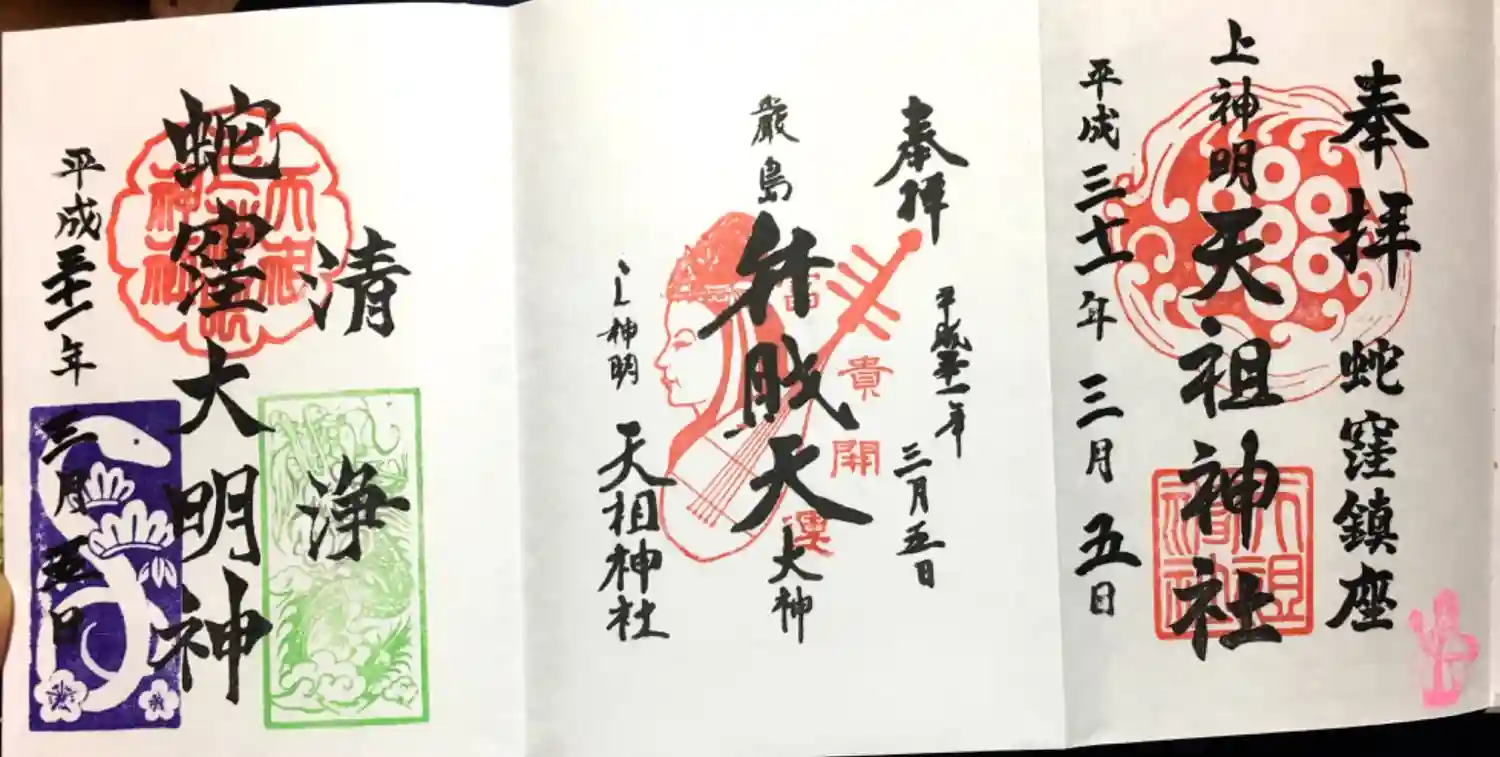 奉拝 蛇窪鎮座
上神明天祖神社
平成三十一年 三月 五日
奉拝
平成三十一年 三月五日
厳島弁財天大神
富
貴
開
運
上神明 天祖神社
清浄
蛇窪大明神
平成三十一年 三月五日